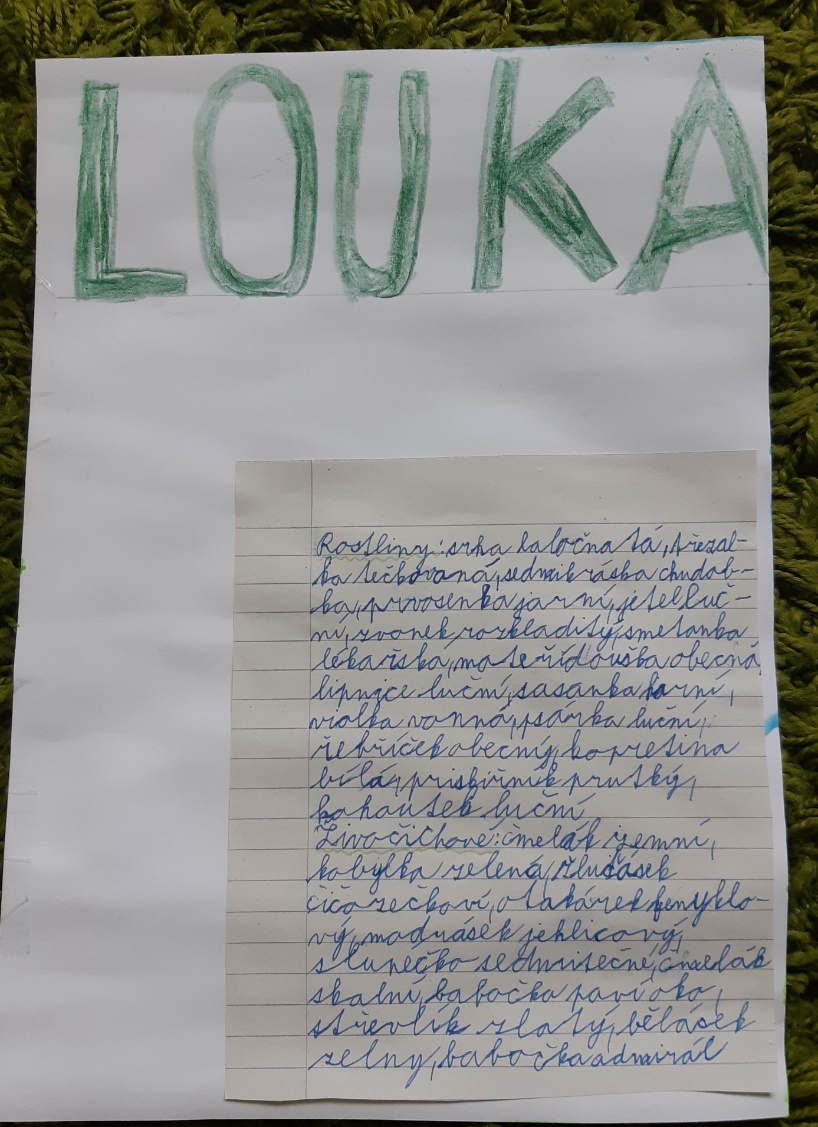 LOUKA
Rostliny: srha laločnatá, třezal-
ka tečkovaná, sedmikráska chudob-
ka, prvosenka jarní, jetel luč-
ní, zvonek rozkladitý, smetanka
lékařska, mateřídouška obecná,
lipnice luční, sasanka jarní,
violka vonná, psárka luční,
řebříček obecný, kopretina
bílá, priskirník prutký,
kohoutek luční
Živočichové: čmelák zemní,
kobylka zelená, žluťásek
čičorečkoví, otakárek fenyklo-
vý, modrásek jehlicový,
slunéčko sedmitečné, čmelák
skalní, babočka paví oko,
střevlík zlatý, bělásek
zelny, babočka admirál